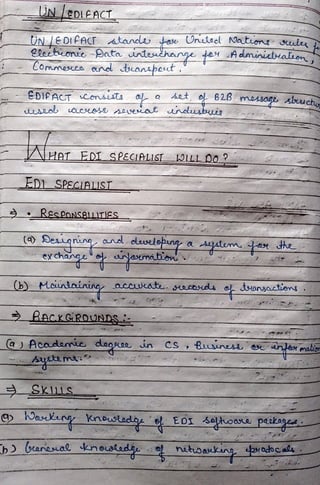 UN / EDIFACT
UN / EDIFACT stands for United Nations rules f
Electronic Data interchange for Administration,
Commerce and transport.
EDIFACT consists of a set of B2B message struct
used across several industries
WHAT EDI SPECIALIST WILL DO?
EDI SPECIALIST
⇒ • RESPONSBILITIES
(a) Designing and developing a system for the
exchange of information.
(b) Maintaining accurate records of transactions.
⇒ BACKGROUNDS :-
(a) Academic degree in CS, Business or informatio
systems.
⇒ SKILLS
(a) Working knowledge of EDI Software packages.
(b) General knowledge of networking protocols